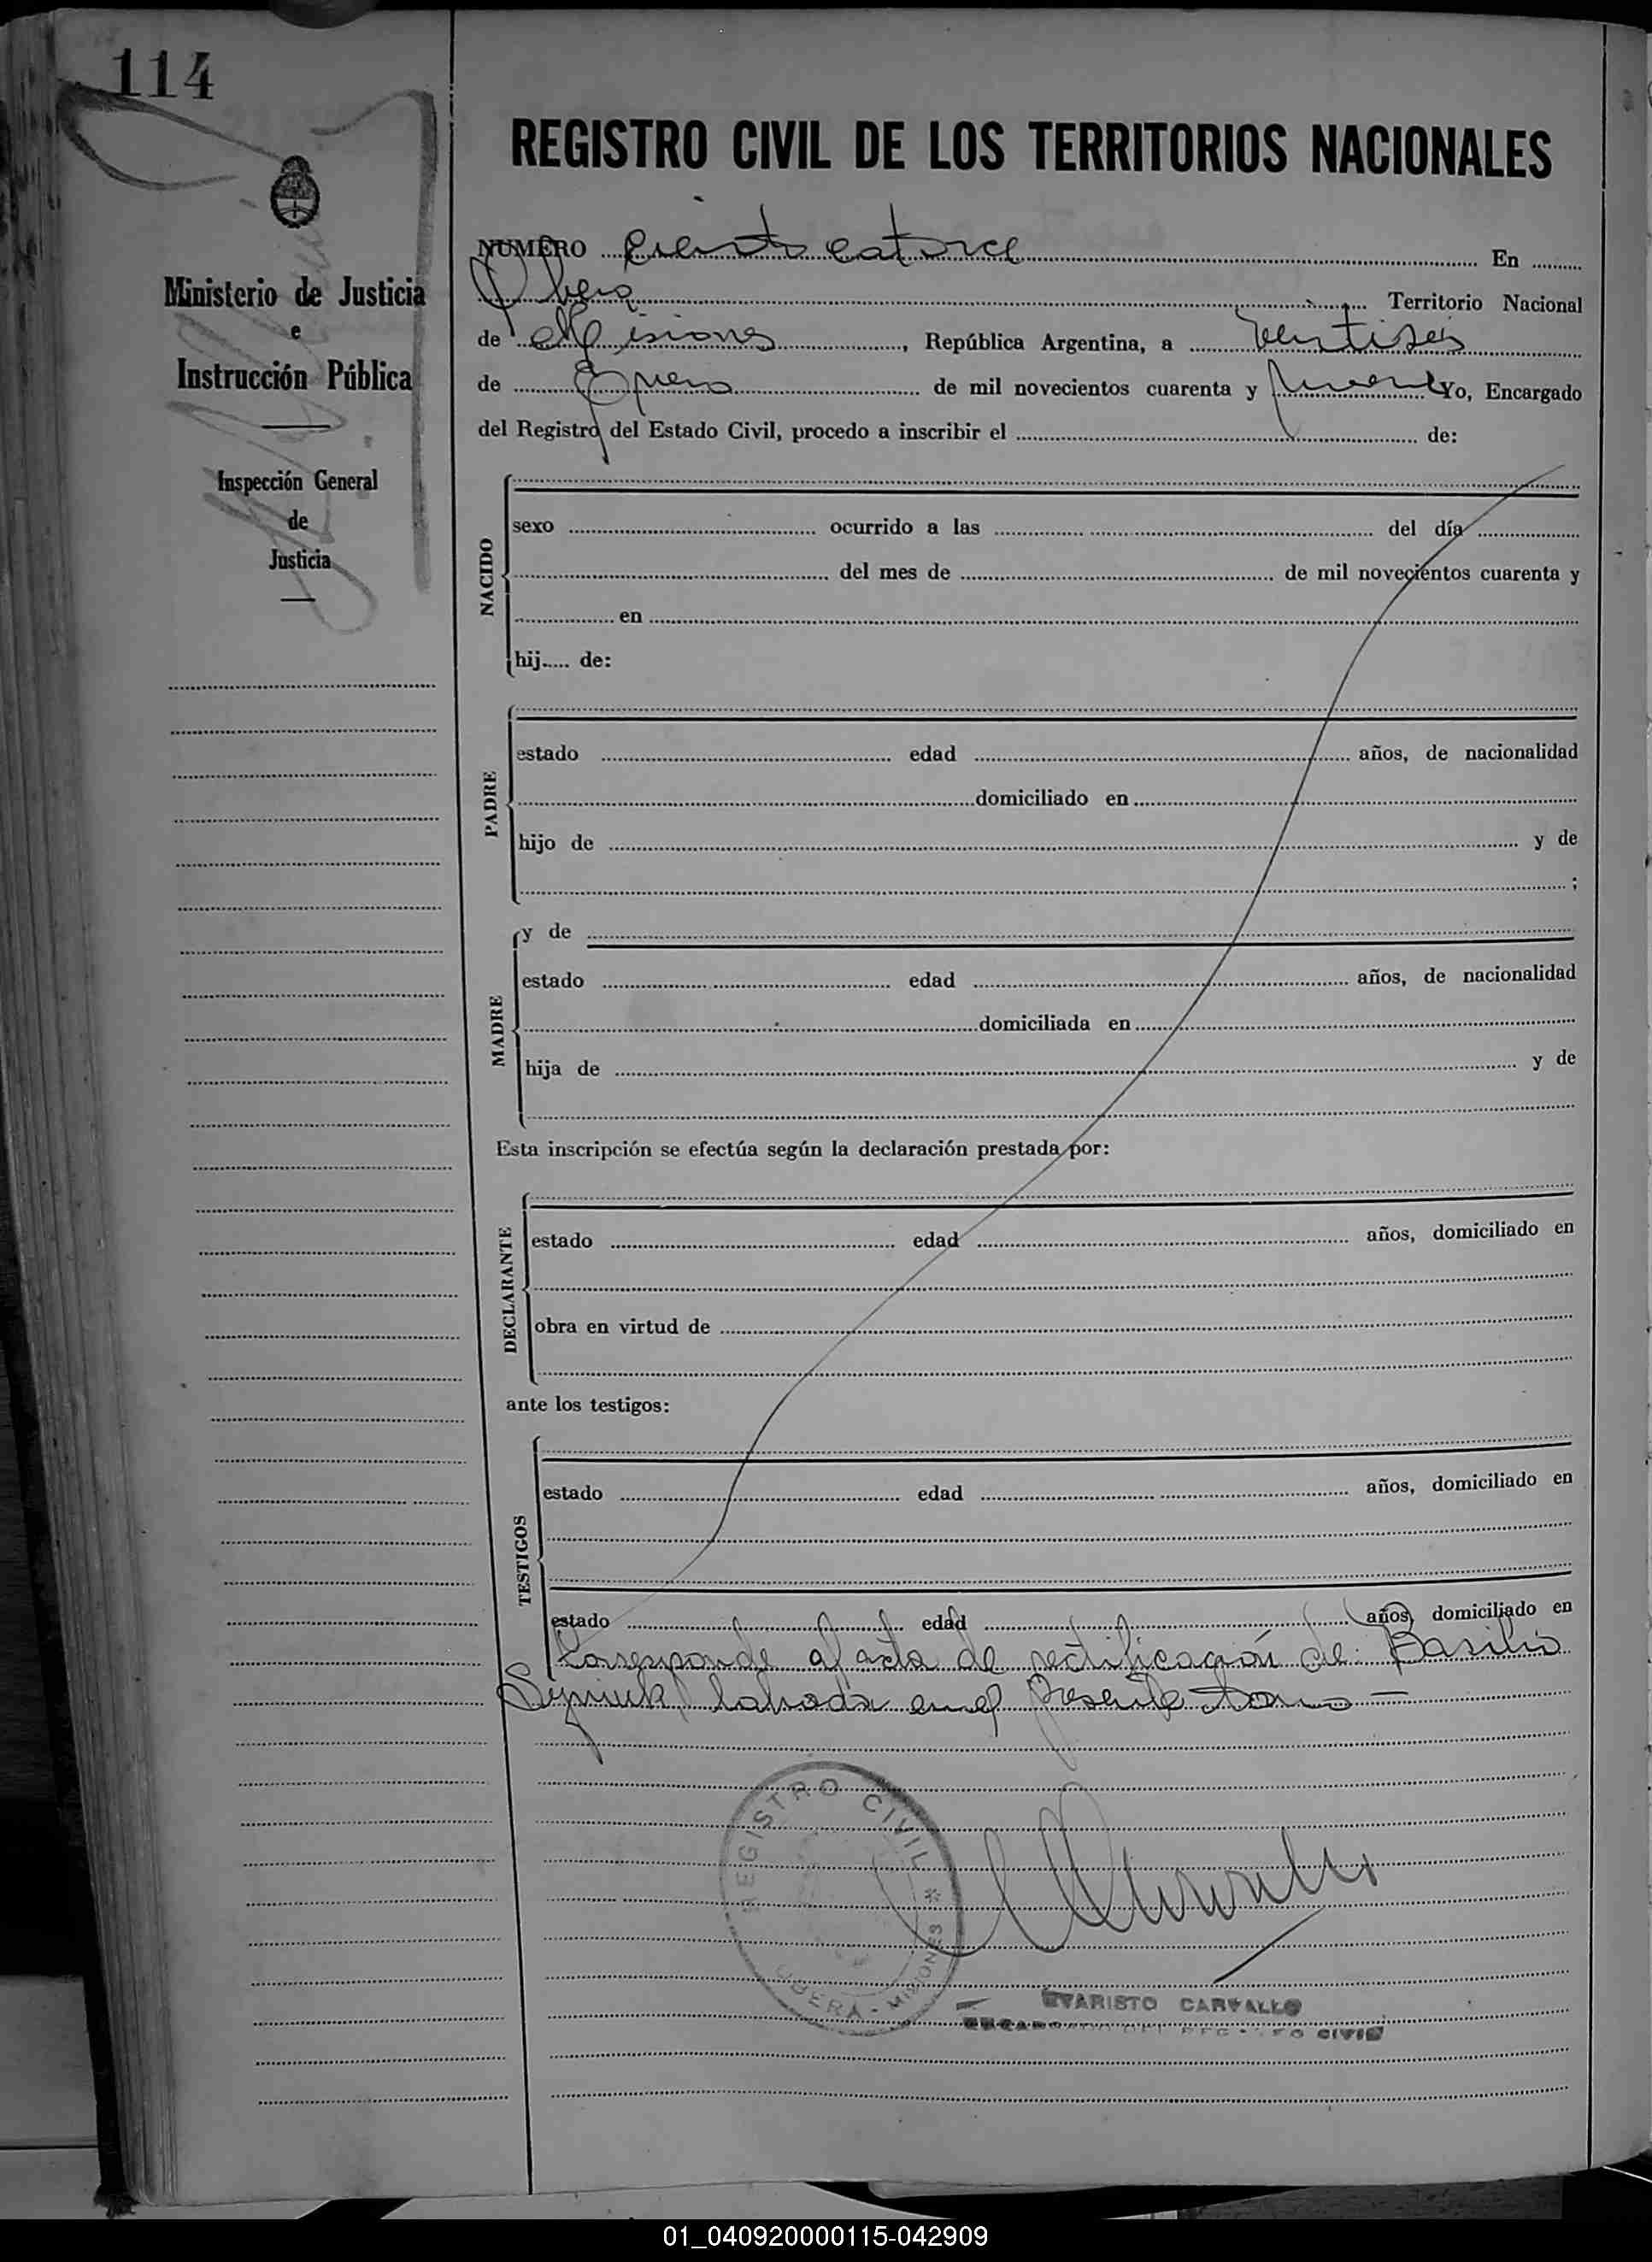 114
REGISTRO CIVIL DE LOS TERRITORIOS NACIONALES
Ministerio de Justicia
e
Instrucción Pública
Inspección General
de
Justicia
NUMERO ciento catorce En
Oberá Territorio Nacional
de Misiones, República Argentina, a veintiseis
de Enero de mil novecientos cuarenta y nueve Yo, Encargado
del Registro del Estado Civil, procedo a inscribir el de:
NACIDO
sexo ocurrido a las del día
del mes de de mil novecientos cuarenta y
en
hij de:
PADRE
estado edad años, de nacionalidad
domiciliado en
hijo de y de
;
MADRE
y de
estado edad años, de nacionalidad
domiciliada en
hija de y de
Esta inscripción se efectúa según la declaración prestada por:
DECLARANTE
estado edad años, domiciliado en
obra en virtud de
ante los testigos:
TESTIGOS
estado edad años, domiciliado en
estado edad años, domiciliado en
Corresponde al acta de rectificación de Basilio
labrada en el presente tomo —
REGISTRO CIVIL *
OBERA - MISIONES
EVARISTO CARVALLO
ENCARGADO DEL REGISTRO CIVIL
01_040920000115-042909